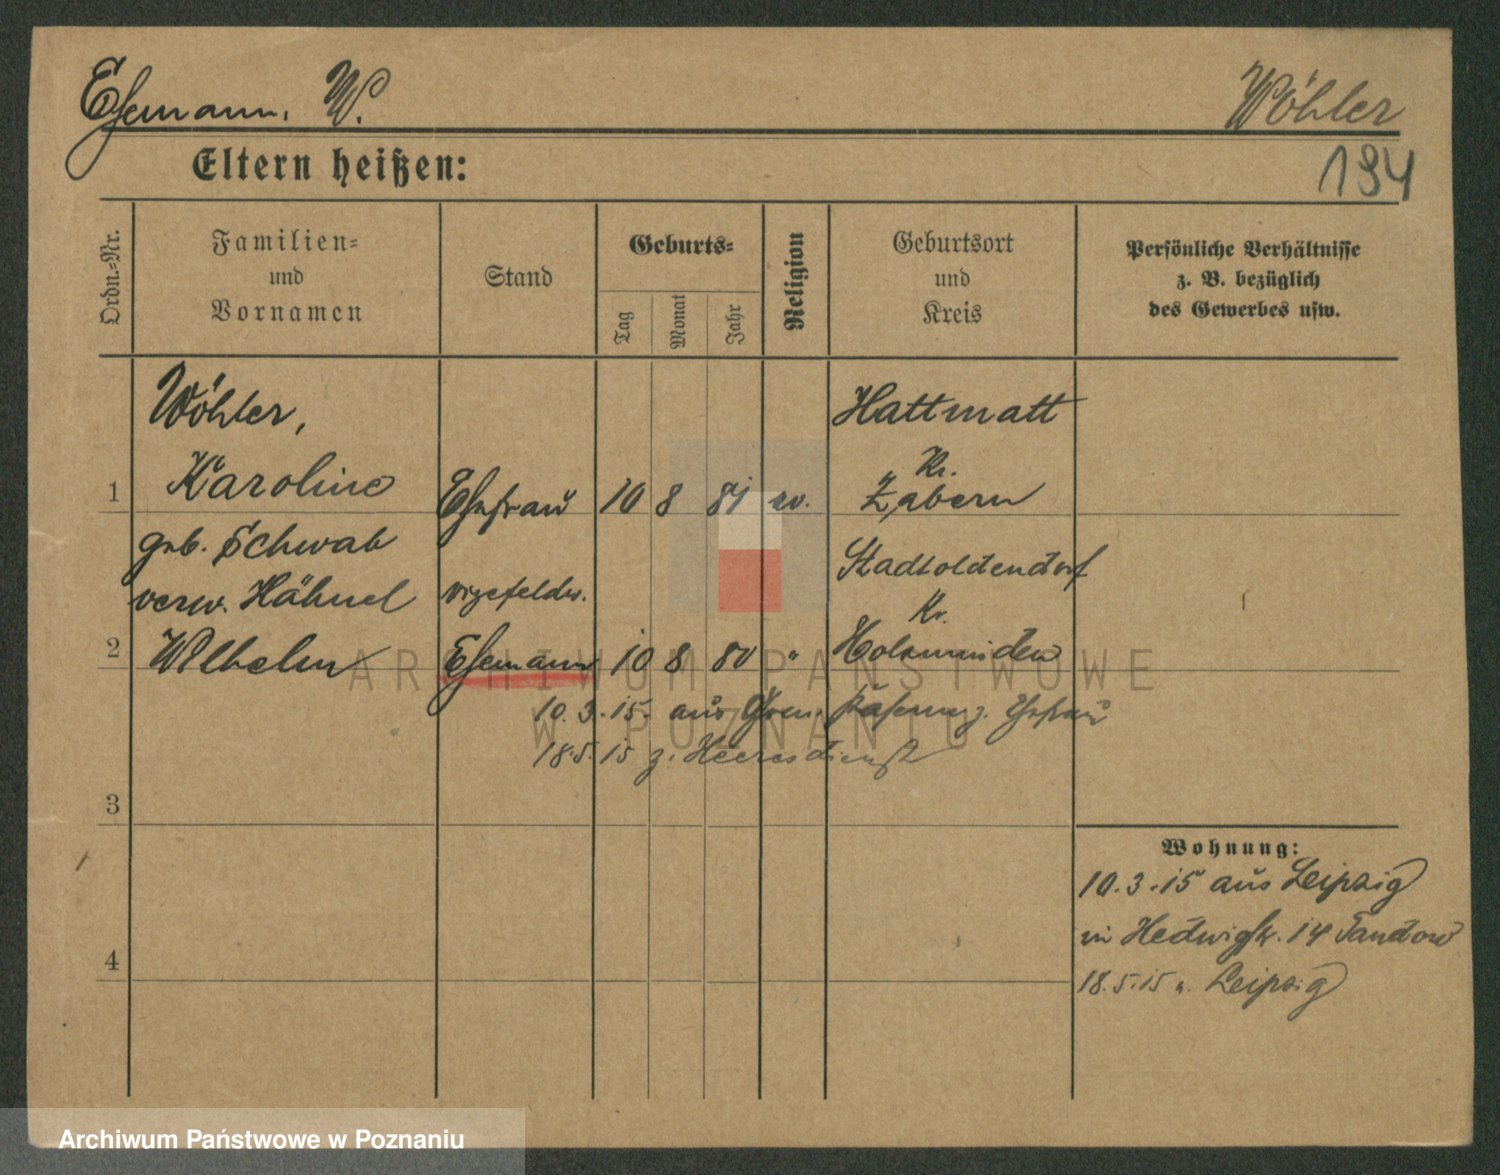 Ehemann, W.
Wöhler
194
Eltern heißen:
Ordn.=Nr.
Familien=
und
Vornamen
Stand
Geburts=
Tag
Monat
Jahr
Religion
Geburtsort
und
Kreis
Persönliche Verhältnisse
z. B. bezüglich
des Gewerbes usw.
Wöhler,
Hattmatt
Kr.
1 Karoline Ehefrau 10 8 81 ev. Zabern
geb. Schwab
Stadtoldendorf
verw. Hähnel vizefeldw. Kr.
2 Wilhelm Ehemann 10 8 80 " Holzminden
10.3.15. aus Gren. Kaserne z. Ehefrau
18.5.15 z. Heeresdienst
3
Wohnung:
10.3.15 aus Leipzig
in Hedwigstr. 14
18.5.15 n. Leipzig
4
ARCHIWUM PAŃSTWOWE
W POZNANIU
Archiwum Państwowe w Poznaniu